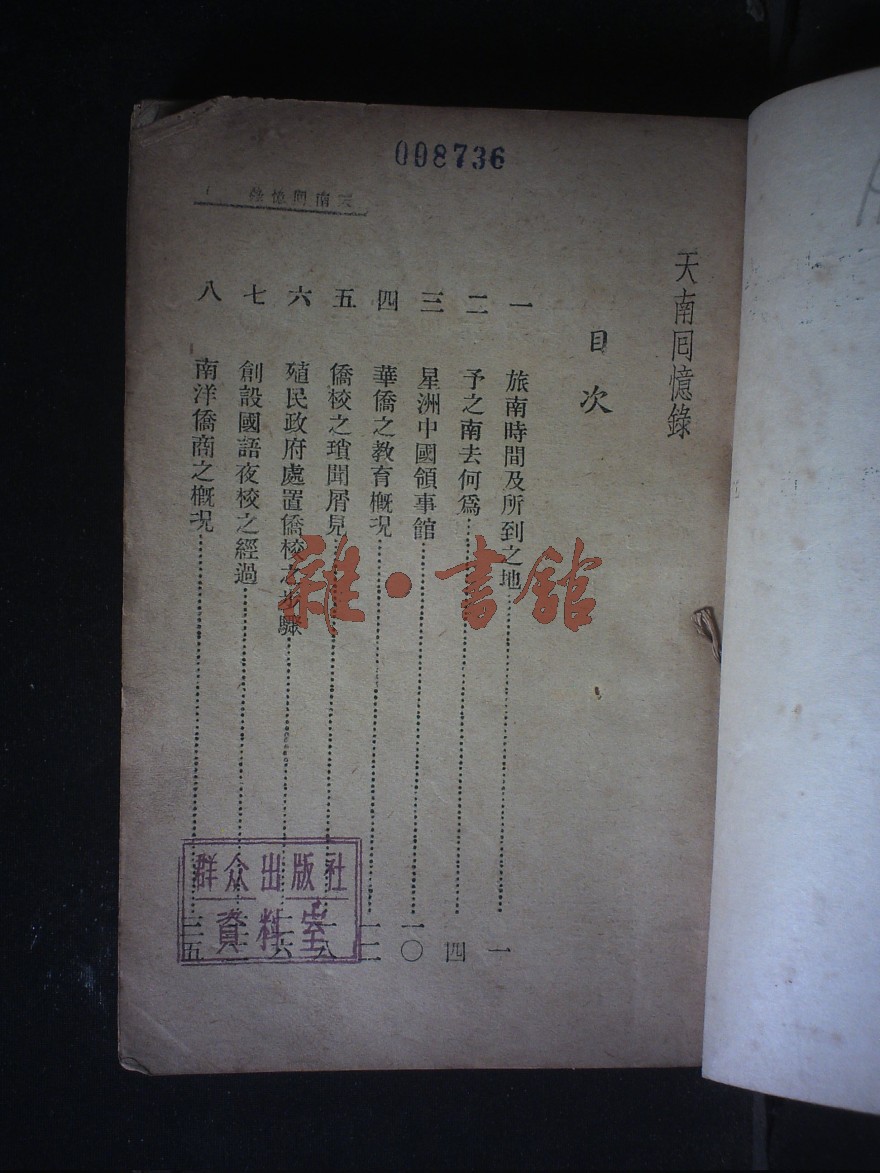 008736
天南囘憶錄
天南囘憶錄
目次
一 旅南時間及所到之地 一
二 予之南去何爲 四
三 星洲中國領事館 一〇
四 華僑之教育概況 一二
五 僑校之瑣聞屑見 一八
六 殖民政府處置僑校之步驟
七 創設國語夜校之經過
八 南洋僑商之概況 三五
雜·書舘
群众出版社
資料室